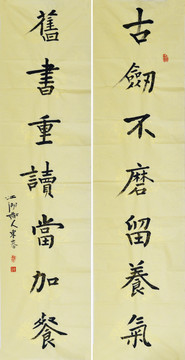 古劔不磨留養氣
舊書重讀當加餐